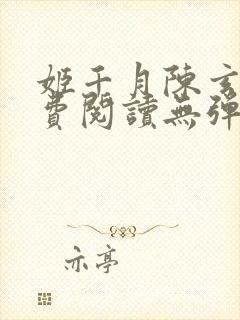 姬千月陳玄
費閱讀無彈
亦亭